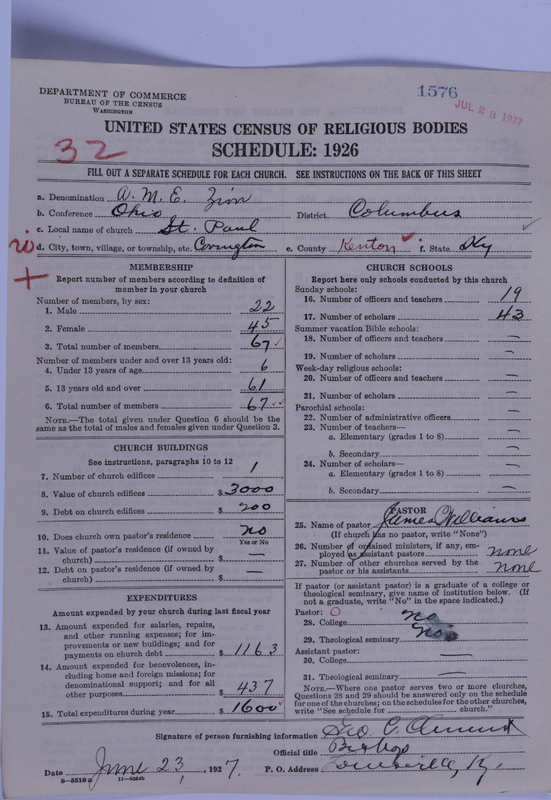 1576
JUL 28 1927
DEPARTMENT OF COMMERCE
BUREAU OF THE CENSUS
WASHINGTON
UNITED STATES CENSUS OF RELIGIOUS BODIES
32
SCHEDULE: 1926
FILL OUT A SEPARATE SCHEDULE FOR EACH CHURCH. SEE INSTRUCTIONS ON THE BACK OF THIS SHEET
a. Denomination A. M. E. Zion
b. Conference Ohio District Columbus
c. Local name of church St. Paul
d. City, town, village, or township, etc. Covington e. County Kenton f. State Ky
MEMBERSHIP
Report number of members according to definition of member in your church
Number of members, by sex:
1. Male 22
2. Female 45
3. Total number of members 67
Number of members under and over 13 years old:
4. Under 13 years of age 6
5. 13 years old and over 61
6. Total number of members 67
NOTE.—The total given under Question 6 should be the same as the total of males and females given under Question 3.
CHURCH BUILDINGS
See instructions, paragraphs 10 to 12
7. Number of church edifices 1
8. Value of church edifices $ 3000
9. Debt on church edifices $ 200
10. Does church own pastor's residence? no
Yes or No
11. Value of pastor's residence (if owned by church) $ —
12. Debt on pastor's residence (if owned by church) $ —
EXPENDITURES
Amount expended by your church during last fiscal year
13. Amount expended for salaries, repairs, and other running expenses; for improvements or new buildings; and for payments on church debt $ 1163
14. Amount expended for benevolences, including home and foreign missions; for denominational support; and for all other purposes $ 437
15. Total expenditures during year $ 1600
CHURCH SCHOOLS
Report here only schools conducted by this church
Sunday schools:
16. Number of officers and teachers 19
17. Number of scholars 43
Summer vacation Bible schools:
18. Number of officers and teachers —
19. Number of scholars —
Week-day religious schools:
20. Number of officers and teachers —
21. Number of scholars —
Parochial schools:
22. Number of administrative officers —
23. Number of teachers—
a. Elementary (grades 1 to 8) —
b. Secondary —
24. Number of scholars—
a. Elementary (grades 1 to 8) —
b. Secondary —
PASTOR
25. Name of pastor James Williams
(If church has no pastor, write "None")
26. Number of ordained ministers, if any, employed as assistant pastors none
27. Number of other churches served by the pastor or his assistants none
If pastor (or assistant pastor) is a graduate of a college or theological seminary, give name of institution below. (If not a graduate, write "No" in the space indicated.)
Pastor: O
28. College no
29. Theological seminary no
Assistant pastor:
30. College —
31. Theological seminary —
NOTE.—Where one pastor serves two or more churches, Questions 28 and 29 should be answered only on the schedule for one of the churches; on the schedules for the other churches, write "See schedule for church."
Signature of person furnishing information Geo C. Clement
Official title Bishop
Date June 23, 1927. P. O. Address Louisville, Ky.